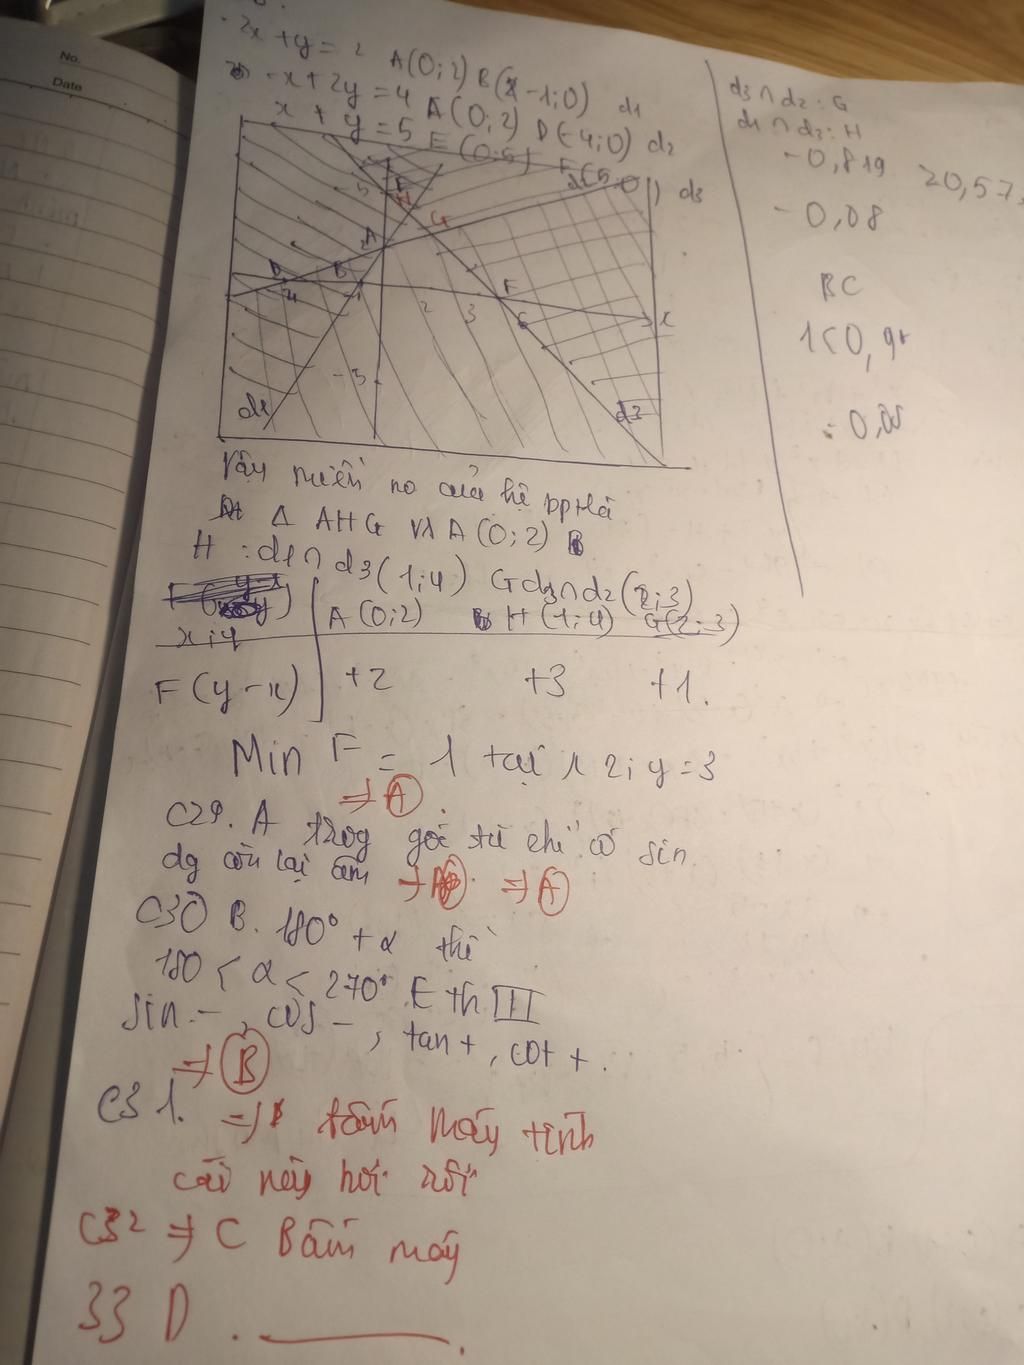 No.
Date
-2x + y = 2 A(0;2) B(-1;0) d1
-x + 2y = 4 A(0;2) D(-4;0) d2
x + y = 5 E(0;5) F(5;0) d3
d3 ∩ d2 : G
d1 ∩ d3 : H
-0,819
20,573
-0,08
BC
0,08
5 E
H
G
A
D B F
-4 -1 2 3 C x
-3
d1 d3
Vậy miền no của hệ bpt là
Δ AHG và A(0;2)
H : d1 ∩ d3 (1;4) G d3 ∩ d2 (2;3)
x ; y A(0;2) H(1;4) G(2;3)
F(y-x) +2 +3 +1.
Min F = 1 tại x 2; y = 3
=> A.
C29. A trog góc tù chỉ có sin
dg còn lại âm => A
C30 B. 180° + α thì
180 < α < 270° E th III
sin -, cos -, tan +, cot +.
=> B
C31. => bấm máy tính
cái này hơi rối
C32 => C Bấm máy
33 D.